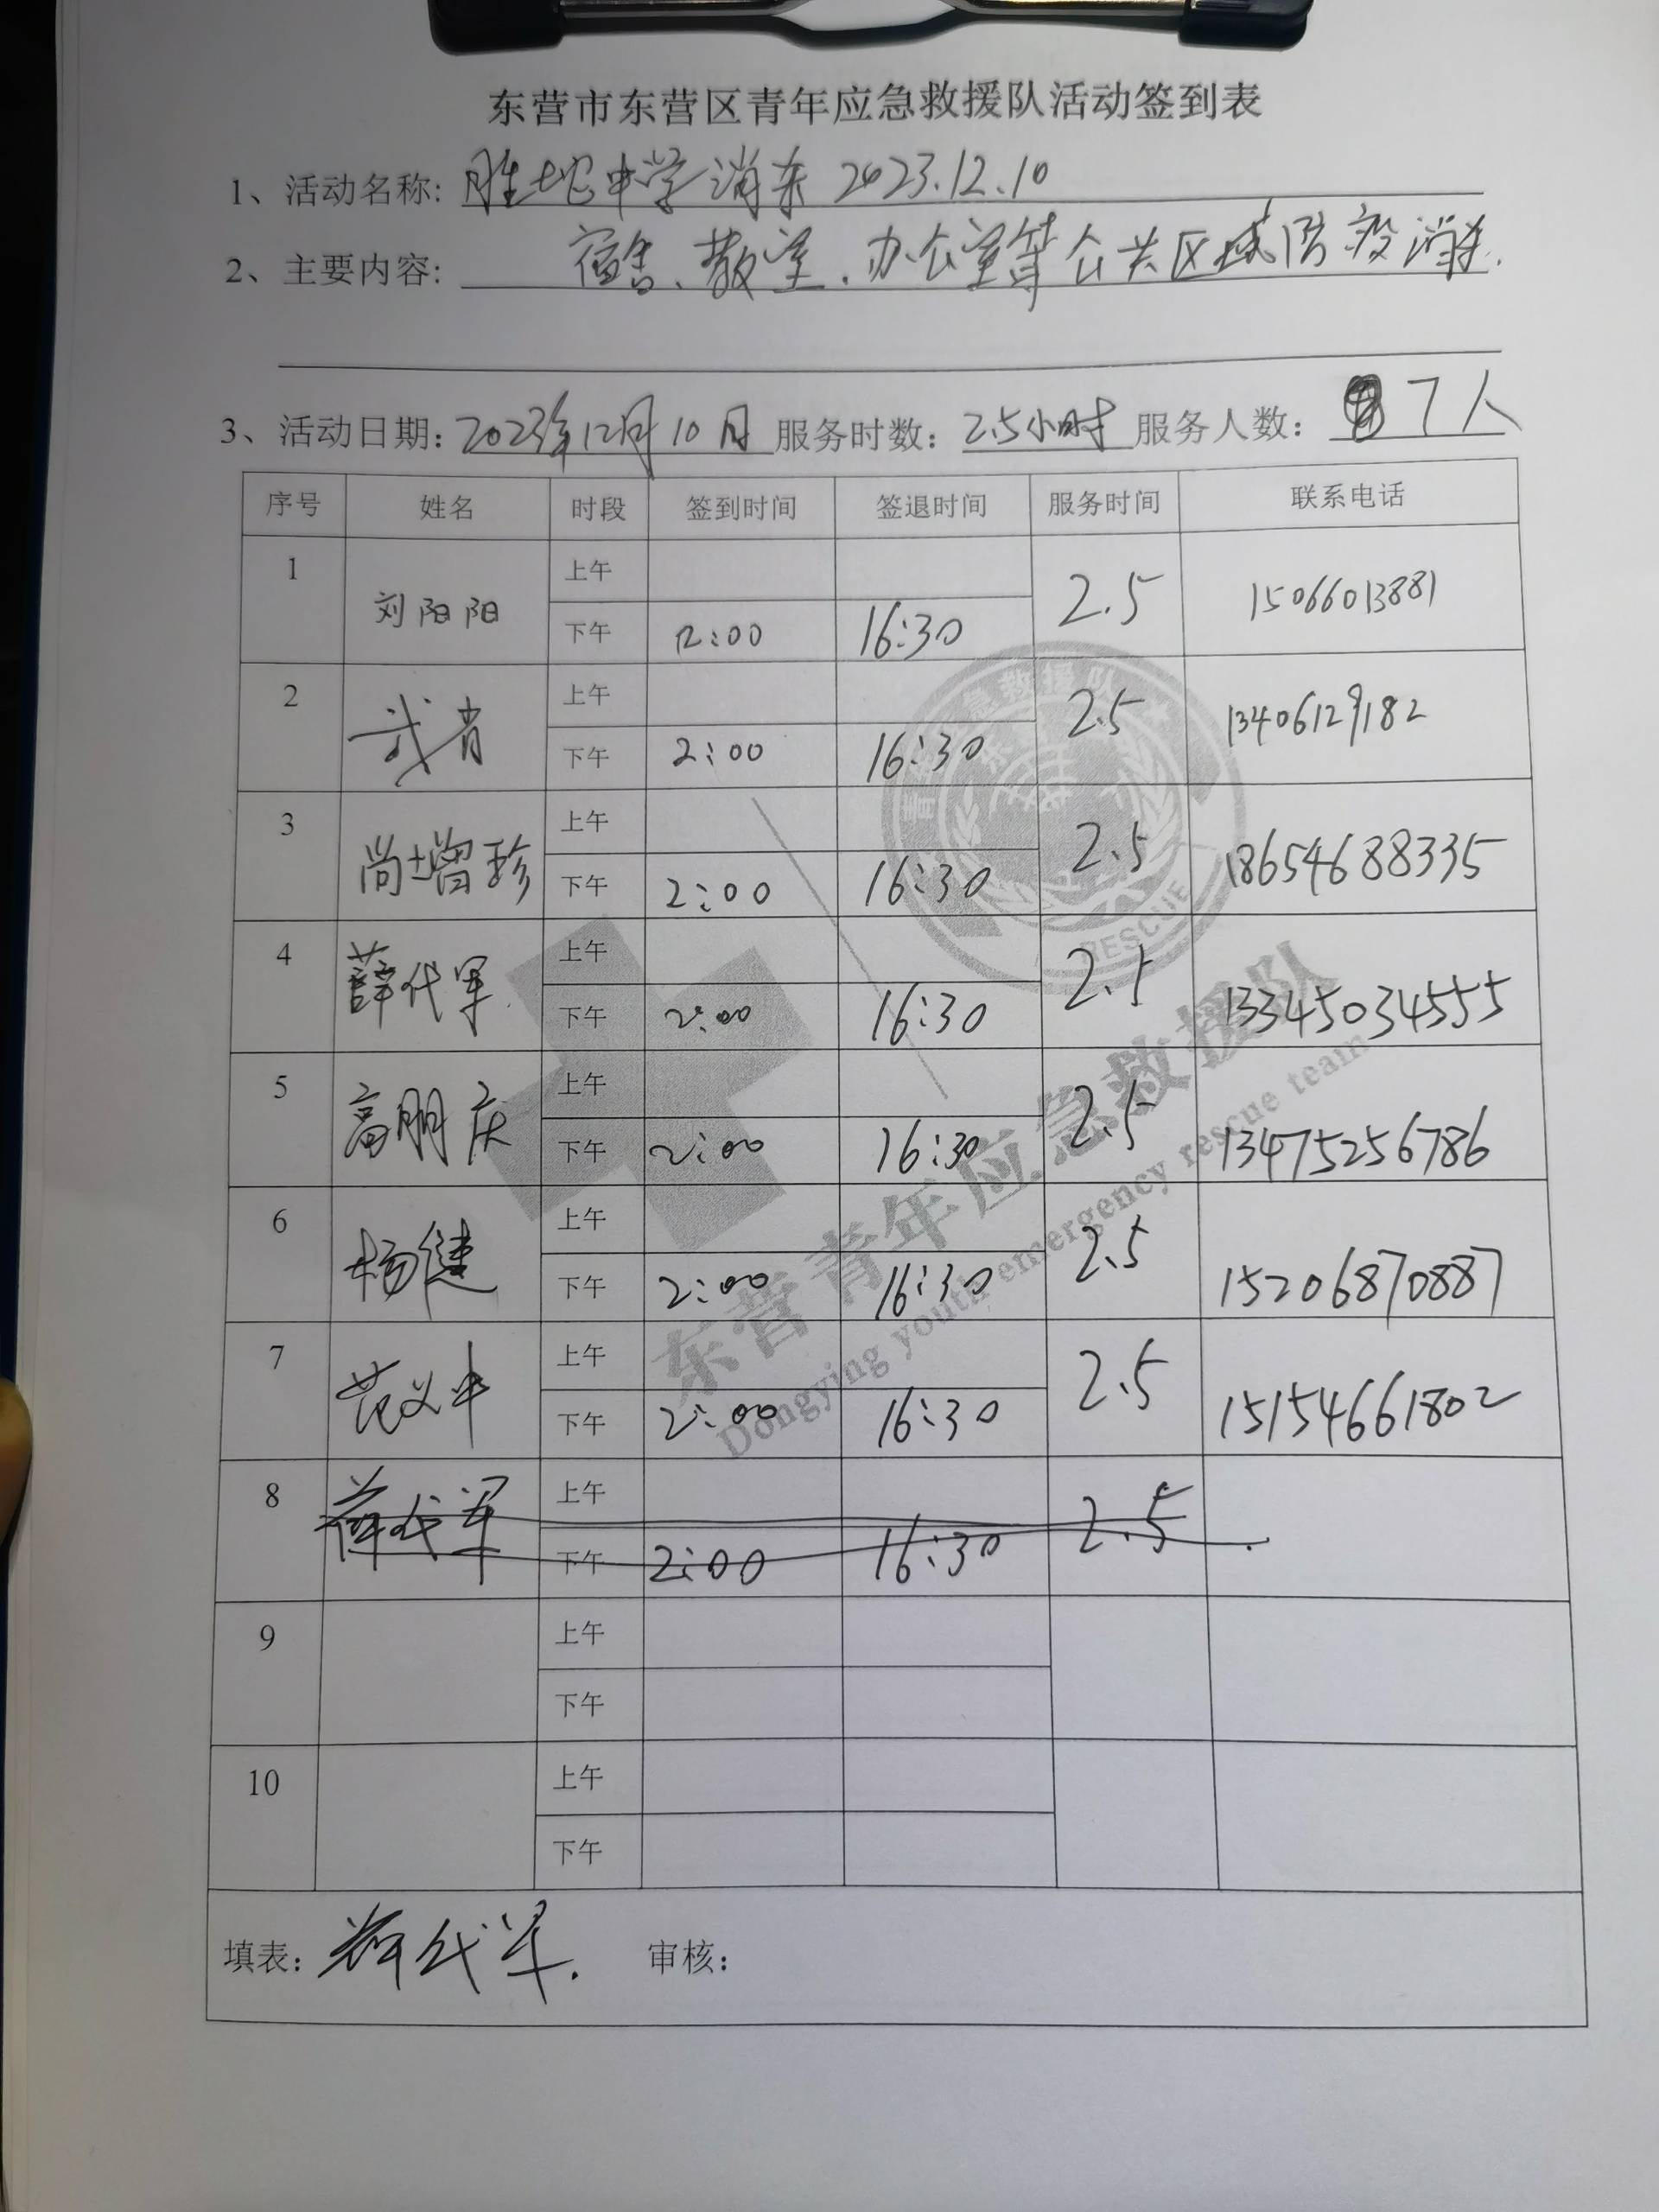 东营市东营区青年应急救援队活动签到表
1、活动名称: 胜地中学消杀 2023.12.10
2、主要内容: 宿舍、教室、办公室等公共区域防疫消杀.
3、活动日期: 2023年12月10日 服务时数: 2.5小时 服务人数: 7人
序号 姓名 时段 签到时间 签退时间 服务时间 联系电话
1 刘阳阳 上午 2.5 15066013881
下午 2:00 16:30
2 武青 上午 2.5 13406129182
下午 2:00 16:30
3 尚增珍 上午 2.5 18654688335
下午 2:00 16:30
4 薛代军 上午 2.5 13345034555
下午 2:00 16:30
5 高朋庆 上午 2.5 13475256786
下午 2:00 16:30
6 杨健 上午 2.5 15206870887
下午 2:00 16:30
7 范义中 上午 2.5 15154661802
下午 2:00 16:30
8 薛代军 上午 2.5
下午 2:00 16:30
9 上午
下午
10 上午
下午
填表: 薛代军. 审核:
东营青年应急救援队
Dongying youth emergency rescue team
RESCUE